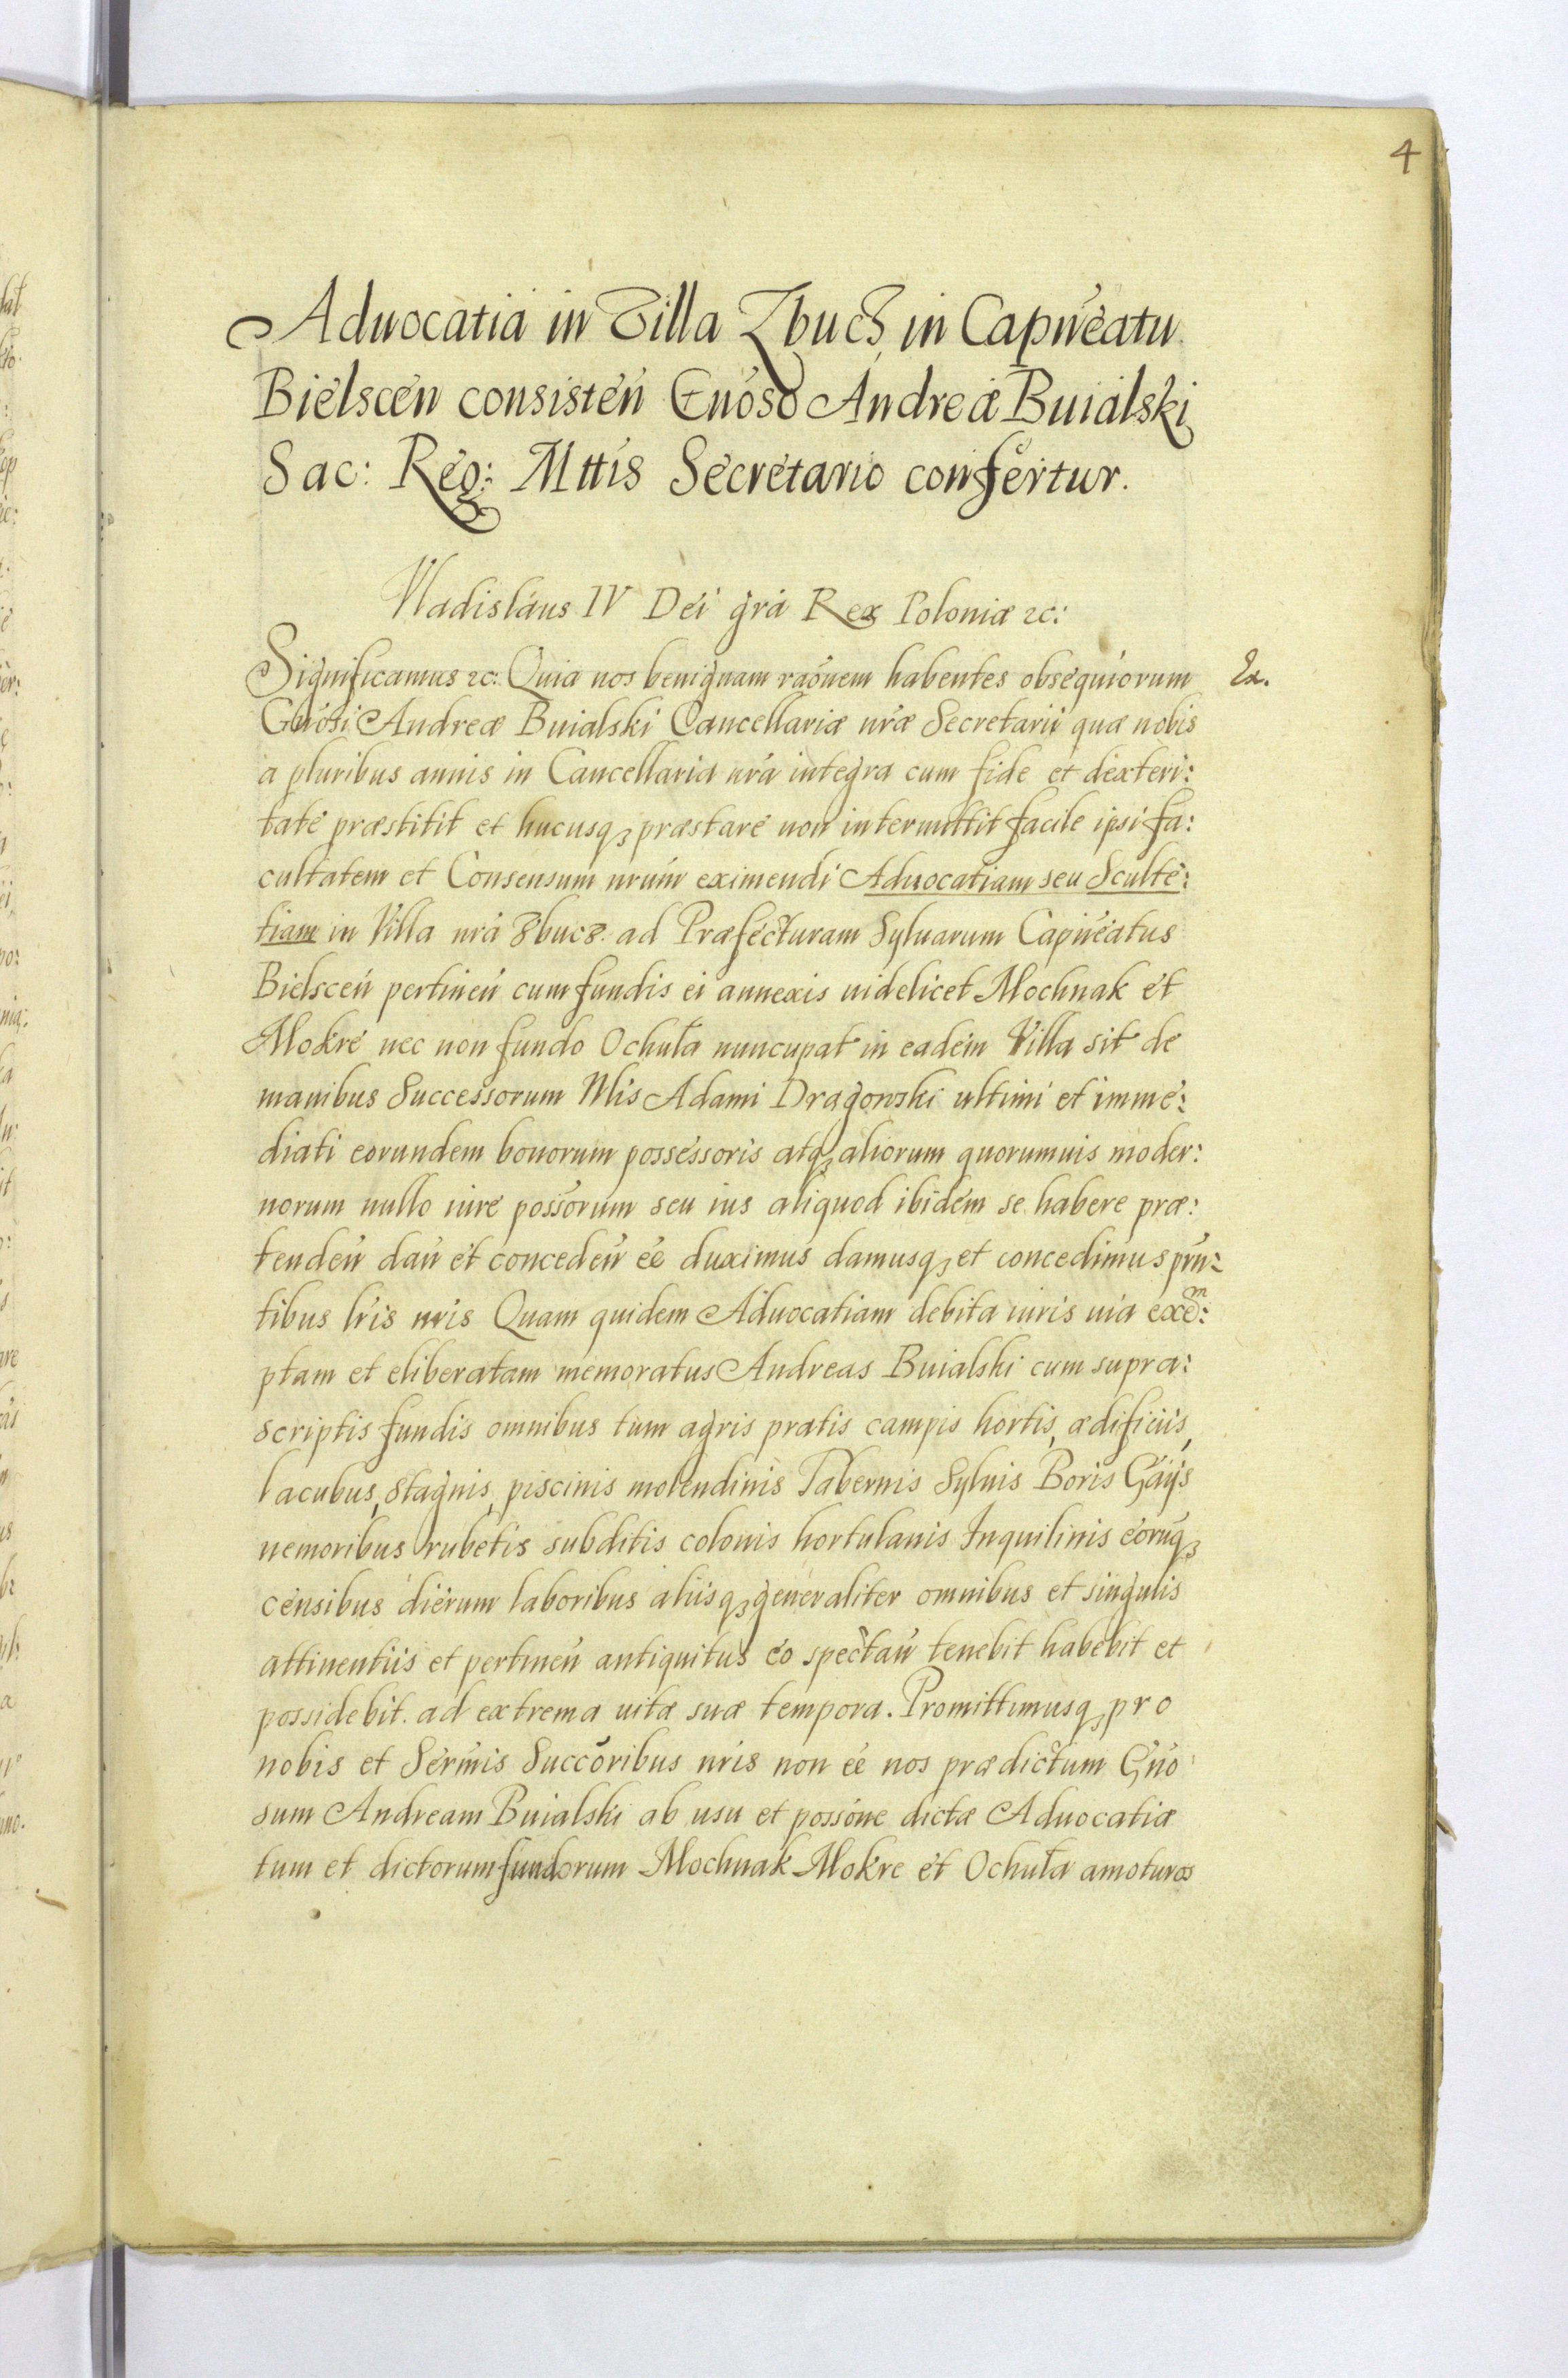 4
Aduocatia in Villa Zbucz in Capńeatu
Bielsceń consisteń Gnoso Andreæ Buialski
Sac: Reg: Mttis Secretario confertur.
Vladislaus IV Dei gra Rex Poloniæ ꝛc:
Significamus ꝛc: Quia nos benignam raonem habentes obsequiorum
Ex.
Gnosi Andreæ Buialski Cancellariæ nræ Secretarii quæ nobis
a pluribus annis in Cancellaria nra integra cum fide et dexteri:
tate præstitit et hucusqꝫ præstare non intermittit facile ipsi fa:
cultatem et Consensum nrum eximendi Aduocatiam seu Sculte:
tiam in Villa nra Zbucz. ad Præfecturam Syluarum Capńeatus
Bielsceń pertineń cum fundis ei annexis uidelicet Mochnak et
Mokre nec non fundo Ochuła nuncupat in eadem Villa sit de
manibus Successorum Nlis Adami Dragowski ultimi et imme:
diati eorundem bonorum possessoris atqꝫ aliorum quorumuis moder:
norum nullo iure possorum seu ius aliquod ibidem se habere præ:
tendeń dań et concedeń ee duximus damusqꝫ et concedimus pŕn:
tibus lris nris Quam quidem Aduocatiam debita iuris uia exe͞m:
ptam et eliberatam memoratus Andreas Buialski cum supra:
scriptis fundis omnibus tum agris pratis campis hortis, ædificiis,
lacubus, Stagnis, piscinis molendinis Tabernis Syluis Boris Gaijs
nemoribus rubetis subditis colonis hortulanis Inquilinis eorūqꝫ
censibus dierum laboribus aliisqꝫ generaliter omnibus et singulis
attinentiis et pertineń antiquitus eo spectań tenebit habebit et
possidebit. ad extrema uitæ suæ tempora. Promittimusqꝫ pro
nobis et Sermis Succoribus nris non ee nos prædictum Gno
sum Andream Buialski ab usu et possone dictæ Aduocatiæ
tum et dictorum fundorum Mochnak Mokre et Ochuła amoturos